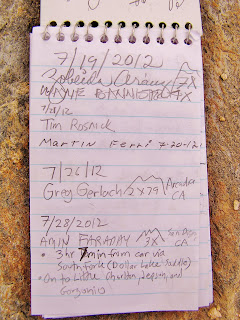 7/19/2012
Zobeida 2X
WAYNE BANNISTER 4X
7/21/12
Tim Rosnick
Martin Ferri 7-20-12
7/26/12
Greg Gerlach 2x79 Arcadia CA
7/28/2012
AMIN FARADAY 3X San Diego CA
• 3hr 7min from car via
South Fork (Dollar Lake Saddle)
• On to Little Charlton, Jepson, and
Gorgonio